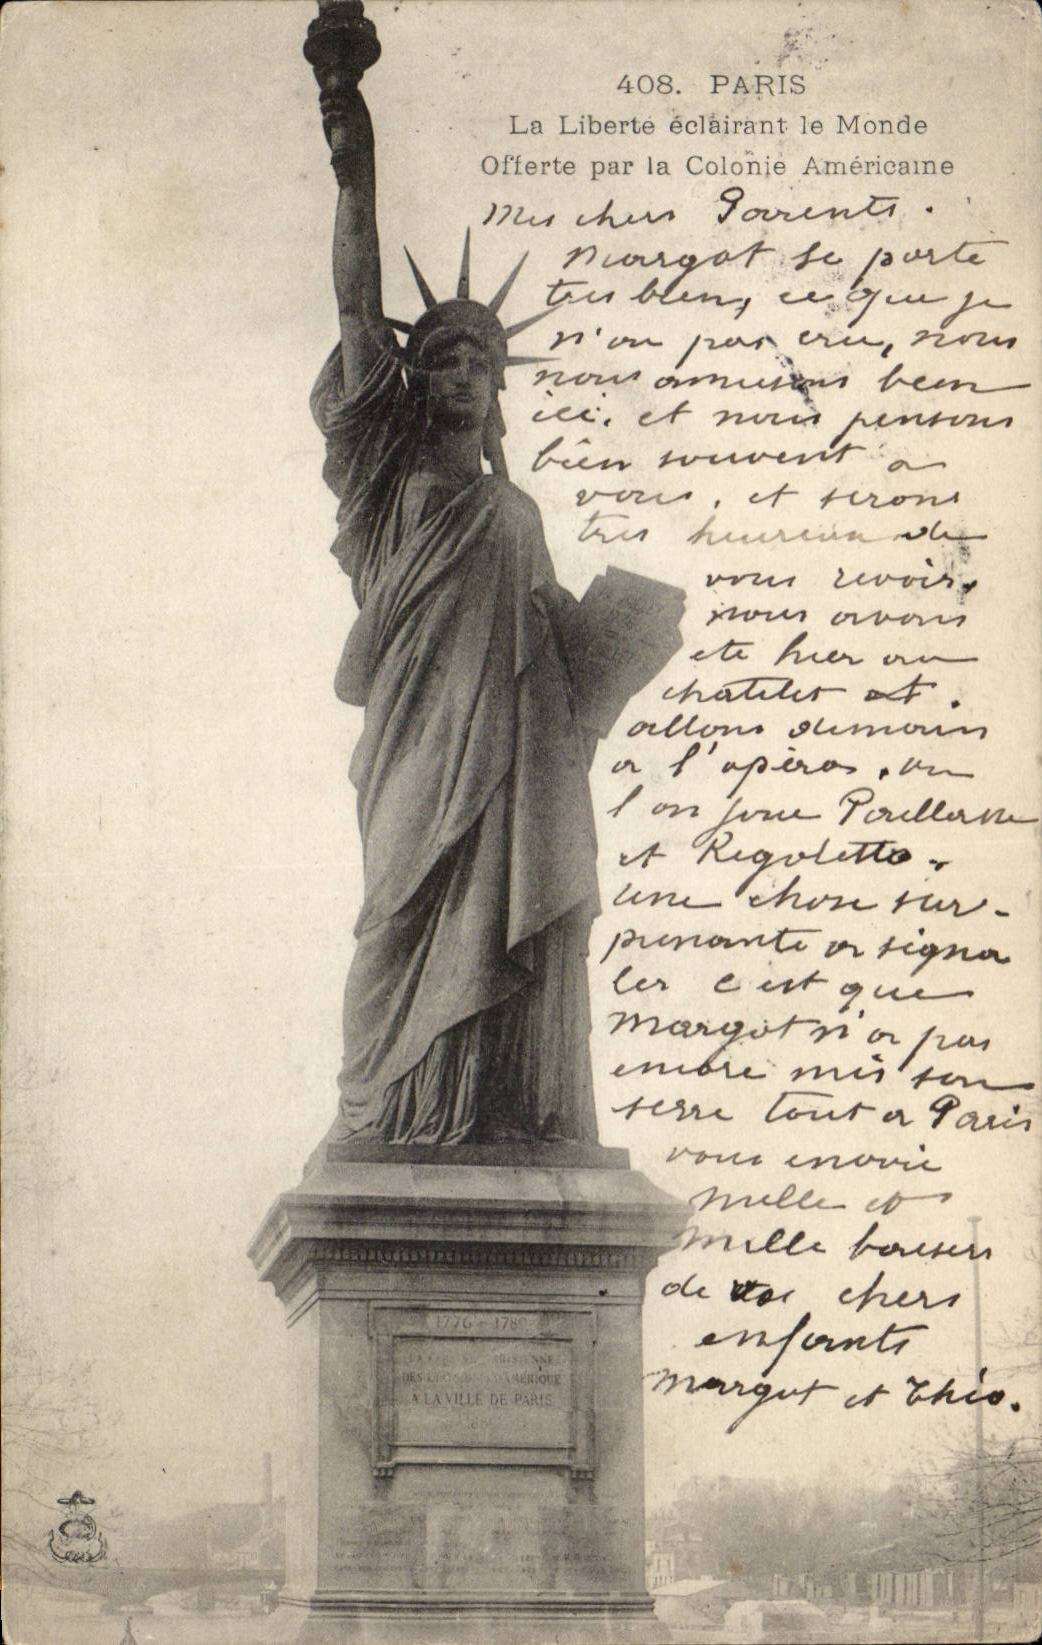 408. PARIS
La Liberté éclairant le Monde
Offerte par la Colonie Américaine
Mes chers Parents.
Margot se porte
tres bien, ce que je
n'ai pas cru, nous
nous amusons bien
ici. et nous pensons
bien souvent a
vous, et serons
tres heureux de
vous revoir.
nous avons
ete hier au
chatelet et.
allons demain
a l'opèra. ou
l on joue Paillasse
et Regoletto.
une chose sur-
prenante a signa
ler c est que
Margot n'a pas
encore mis son
serre tout a Paris
vous envoie
Mille et
Mille baisers
de vos chers
enfants
Margot et Théo.
1776 - 1789
PARISIENNE
DES AMÉRIQUE
A LA VILLE DE PARIS